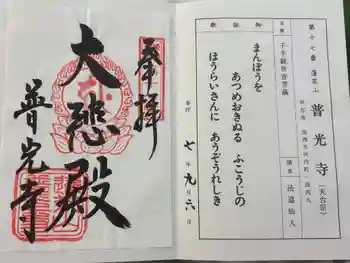 奉拝
大悲殿
普光寺
第十七番 蓬莱山
普光寺
(天台宗)
所在地
本尊
千手観世音菩薩
開基
法道仙人
御詠歌
まんぽうを
あつめおきぬる ふこうじの
ほうらいさんに あうぞうれしき
参拝
七年九月六日